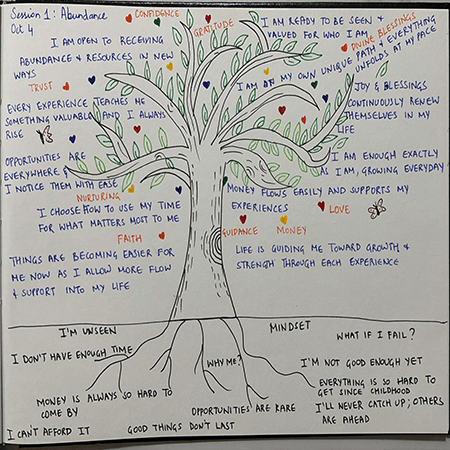 Session 1: Abundance
Oct 4
CONFIDENCE
GRATITUDE
I AM READY TO BE SEEN &
VALUED FOR WHO I AM
DIVINE BLESSINGS
I AM OPEN TO RECEIVING
ABUNDANCE & RESOURCES IN NEW
WAYS
I AM ON MY OWN UNIQUE PATH & EVERYTHING
UNFOLDS AT MY PACE
TRUST
EVERY EXPERIENCE TEACHES ME
SOMETHING VALUABLE AND I ALWAYS
RISE
JOY & BLESSINGS
CONTINUOUSLY RENEW
THEMSELVES IN MY
LIFE
OPPORTUNITIES ARE
EVERYWHERE &
I NOTICE THEM WITH EASE
I AM ENOUGH EXACTLY
AS I AM, GROWING EVERYDAY
NURTURING
I CHOOSE HOW TO USE MY TIME
FOR WHAT MATTERS MOST TO ME
MONEY FLOWS EASILY AND SUPPORTS MY
EXPERIENCES
LOVE
GUIDANCE
MONEY
FAITH
THINGS ARE BECOMING EASIER FOR
ME NOW AS I ALLOW MORE FLOW
& SUPPORT INTO MY LIFE
LIFE IS GUIDING ME TOWARD GROWTH &
STRENGTH THROUGH EACH EXPERIENCE
I'M UNSEEN
MINDSET
WHAT IF I FAIL?
I DON'T HAVE ENOUGH TIME
WHY ME?
I'M NOT GOOD ENOUGH YET
MONEY IS ALWAYS SO HARD TO
COME BY
EVERYTHING IS SO HARD TO
GET SINCE CHILDHOOD
OPPORTUNITIES ARE RARE
I'LL NEVER CATCH UP; OTHERS
ARE AHEAD
I CAN'T AFFORD IT
GOOD THINGS DON'T LAST